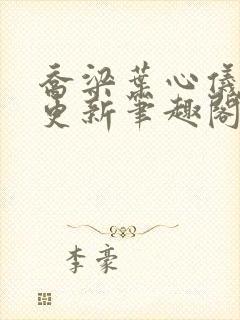 乔梁葉心儀
更新筆趣閣
李豪